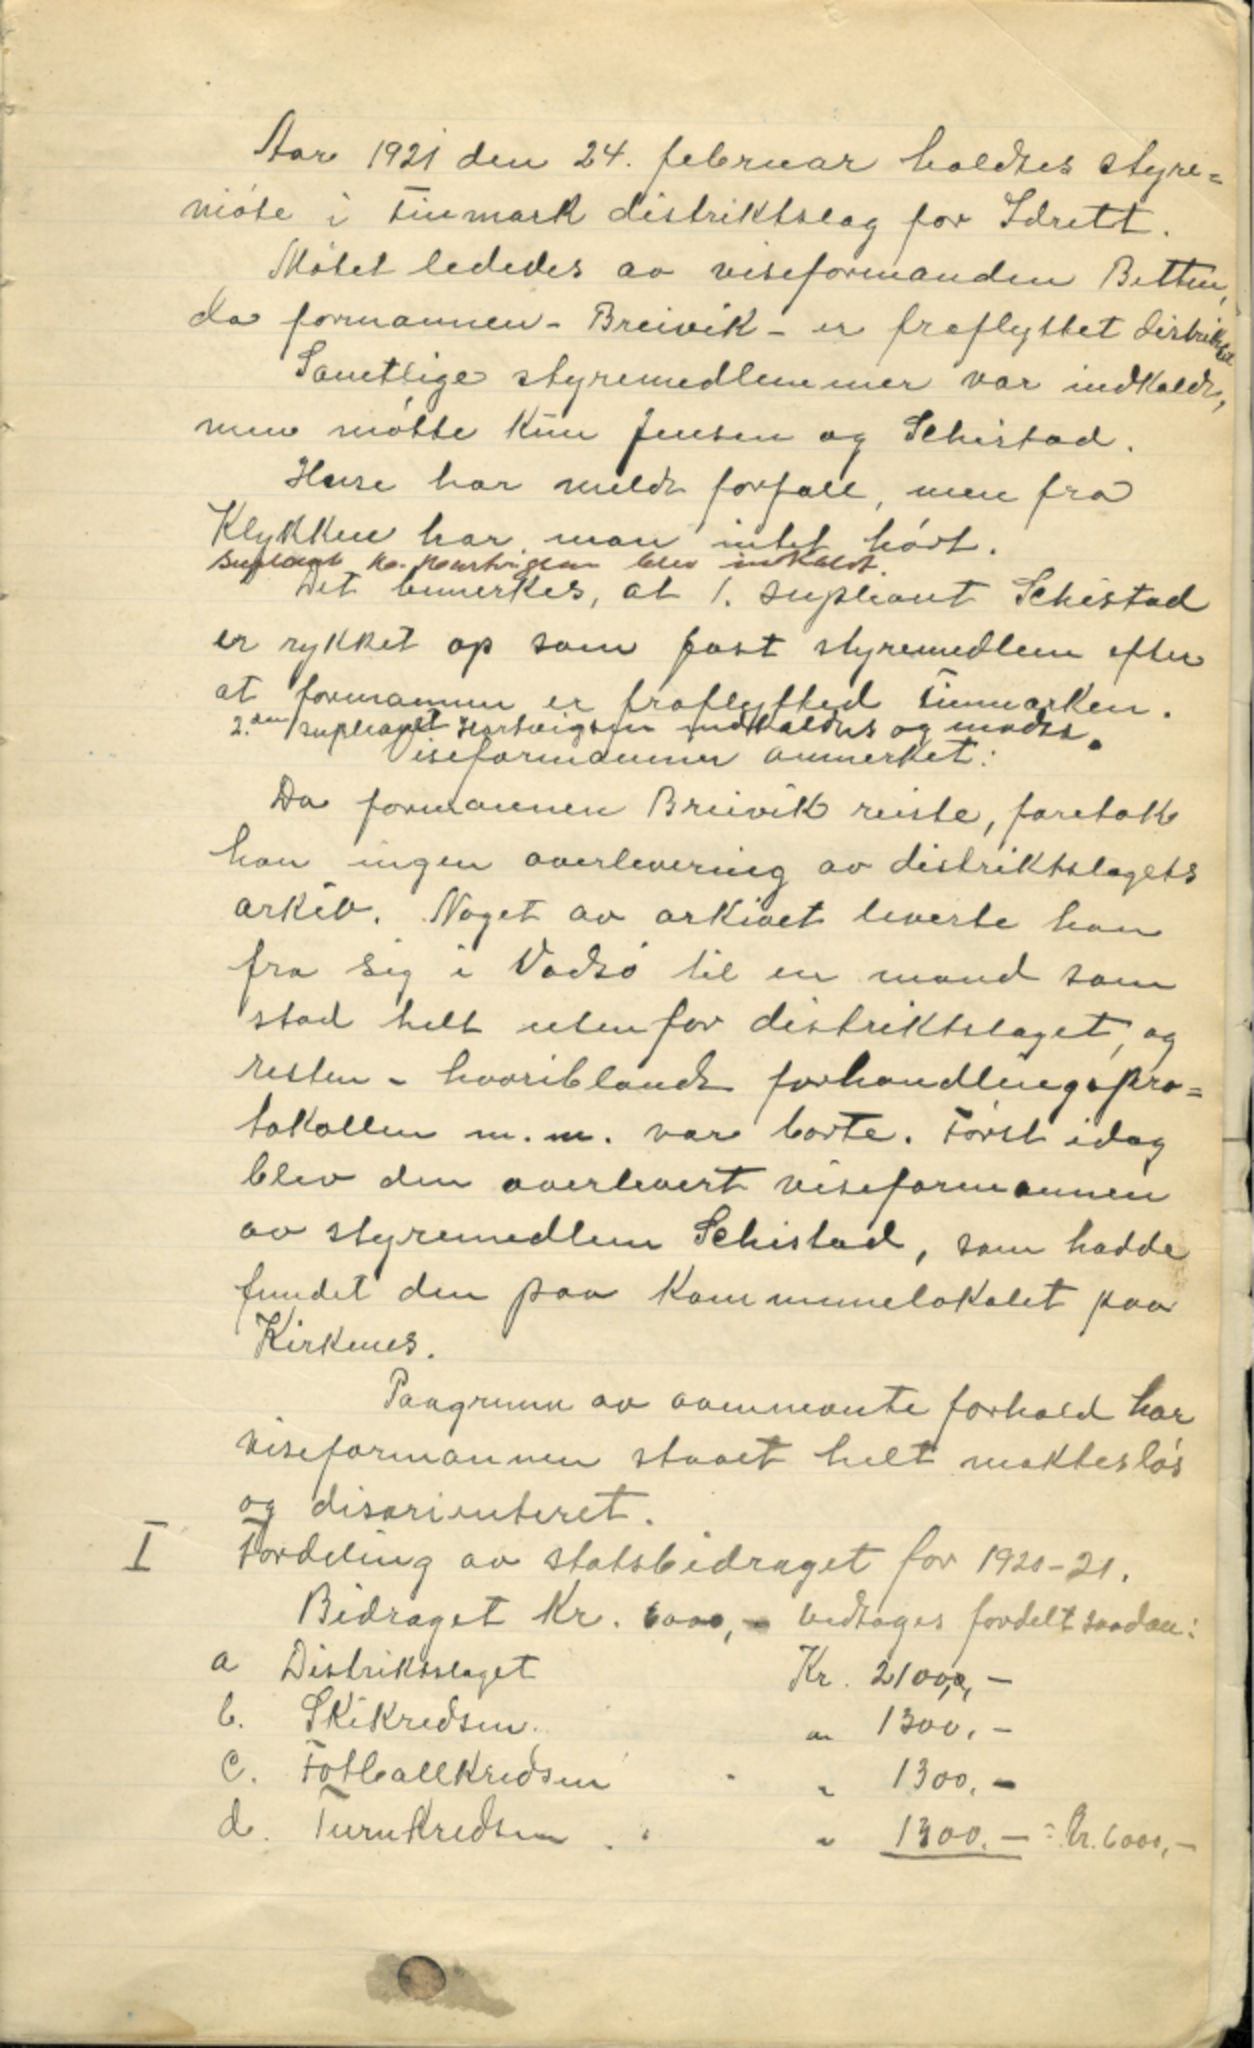 Aar 1921 den 24. februar holdtes styre=
møte i Finmark distriktslag for Idrett.
Møtet lededes av viseformanden Betten,
da formannen - Breivik - er fraflyttet distriktet
Samtlige styremedlemmer var indkaldt,
men møtte kun Jensen og Schistad.
Huse har meldt forfall, men fra
Klykken har man intet hørt.
Supleant K. Hartvigsen blev indkaldt.
Det bemerkes, at 1. supleant Schistad
er rykket op som fast styremedlem efter
at formannen er fraflytted Finmarken.
2.den supleant Hartvigsen indkaldtes og mødte.
Viseformannen anmerket:
Da formannen Breivik reiste, foretok
han ingen overlevering av distriktslagets
arkiv. Noget av arkivet leverte han
fra sig i Vadsø til en mand som
stod helt utenfor distriktslaget, og
resten - hvoriblandt forhandlingspro=
tokollen m.m. var borte. Først idag
blev den overlevert viseformannen
av styremedlem Schistad, som hadde
fundet den paa Kommunelokalet paa
Kirkenes.
Paagrunn av ovennevnte forhold har
viseformannen staaet helt maktesløs
og disorienteret.
I Fordeling av statsbidraget for 1920-21.
Bidraget Kr. 6000,- vedtages fordelt saadan:
a Distriktslaget Kr. 2100,-
b. Skikredsen „ 1300.-
c. Fotballkredsen „ 1300.-
d. Turnkredsen „ 1300.- = Kr. 6000,-